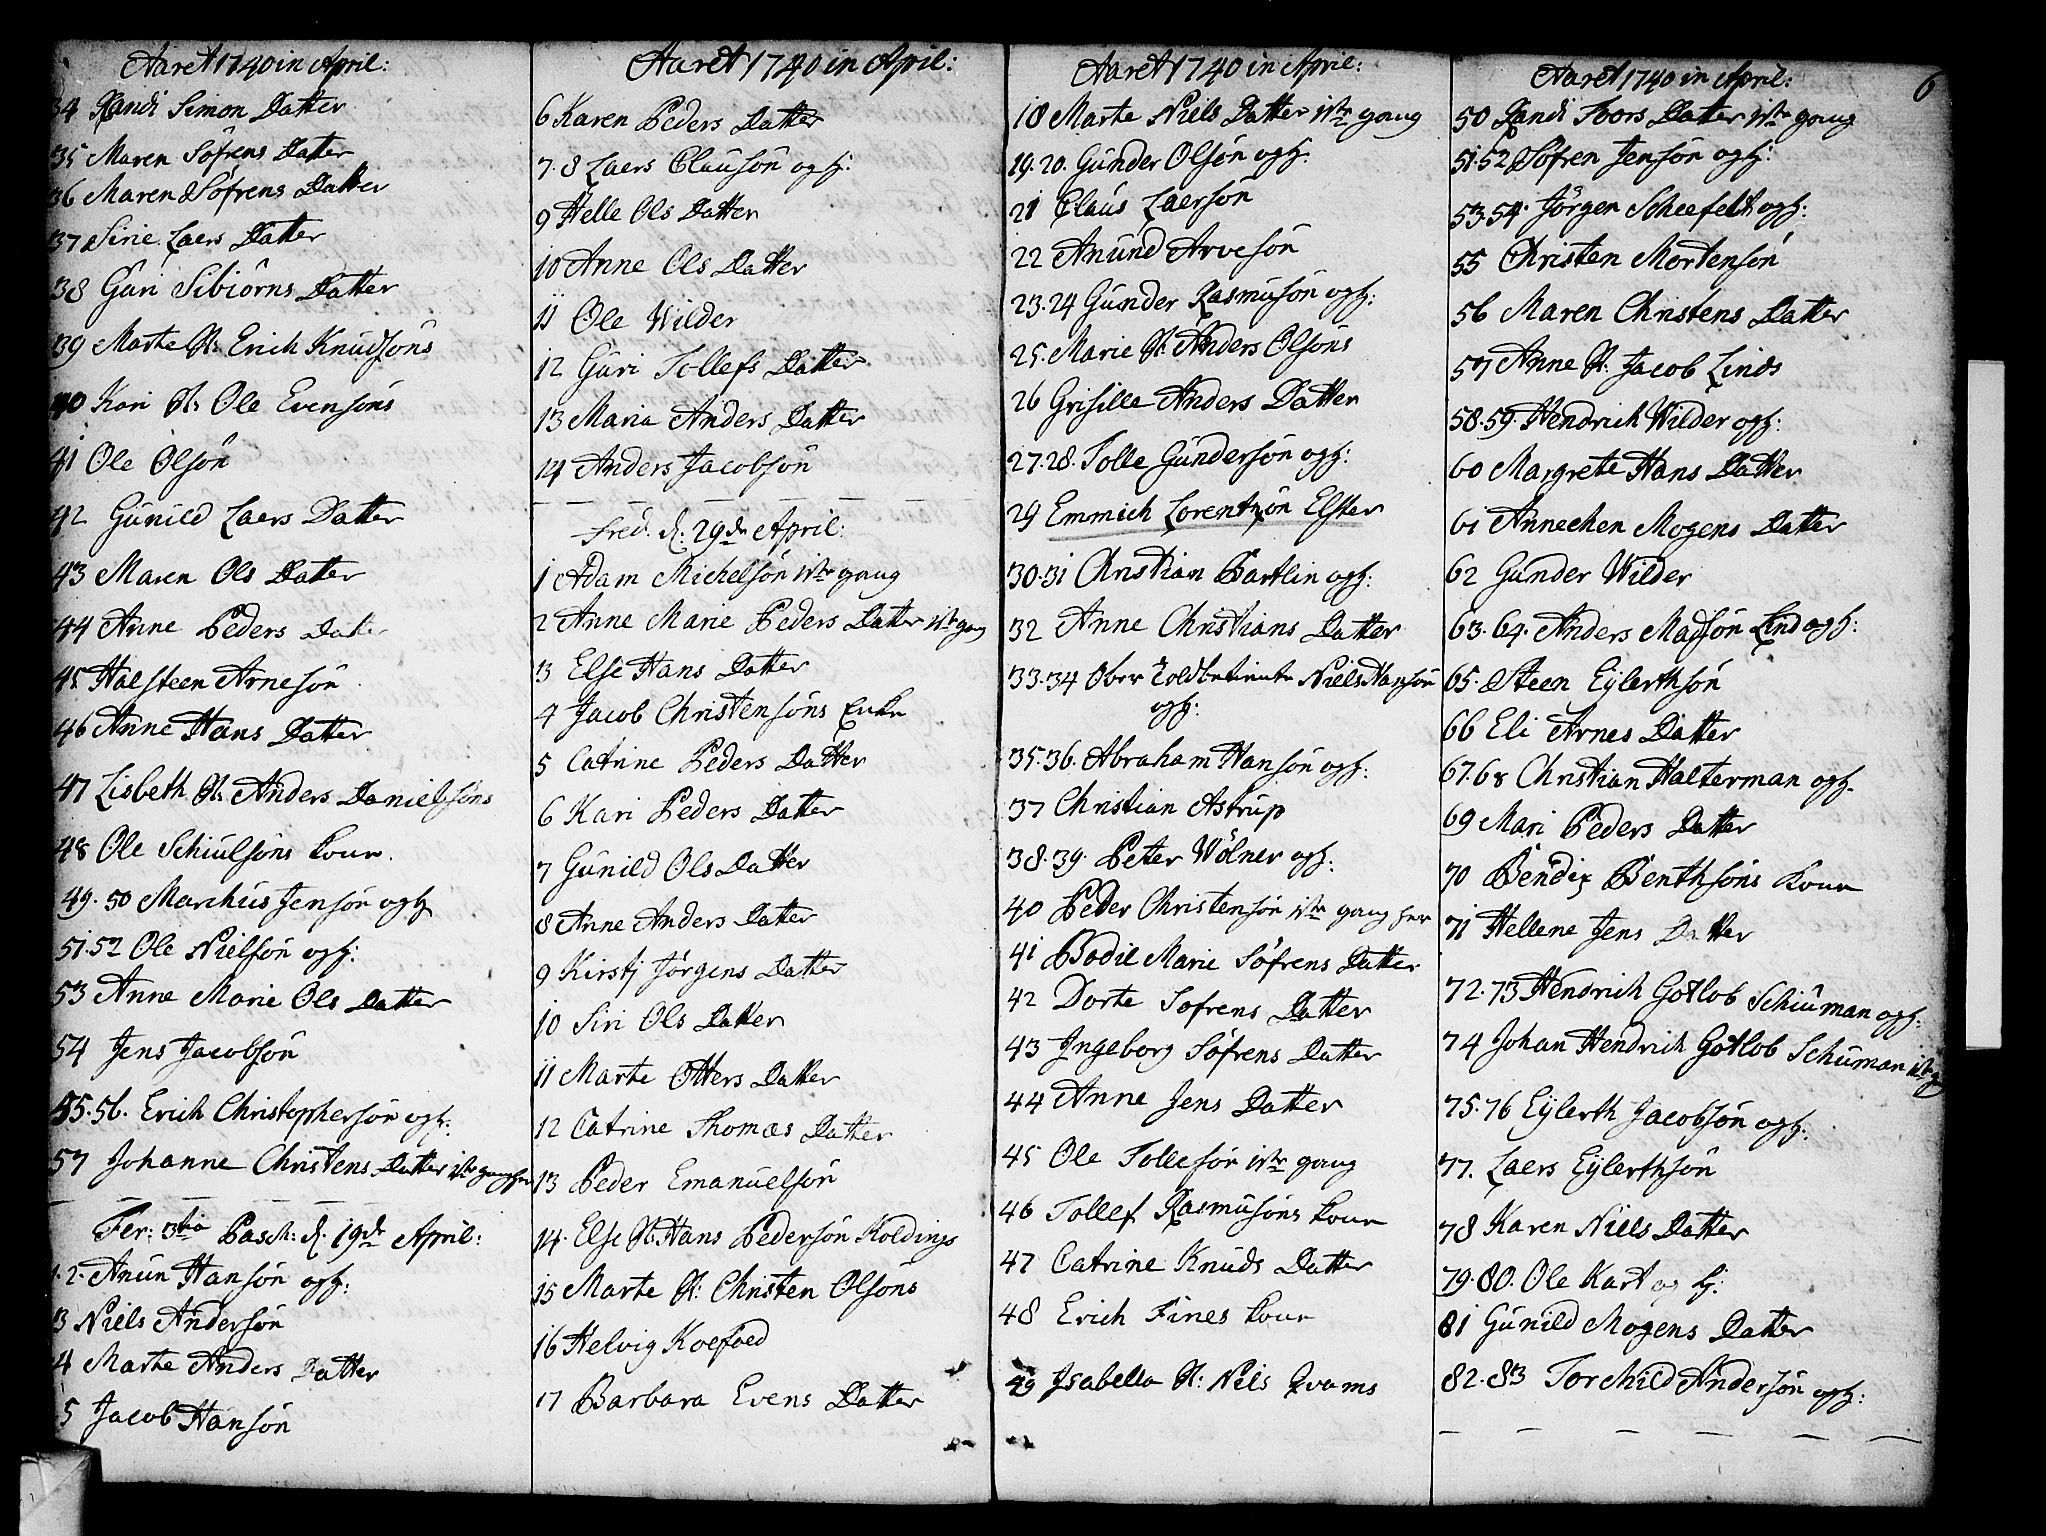 Aaret 1740 in April:
34 Randi Simon Datter
35 Maren Söfrens Datter
36 Maren Söfrens Datter
37 Sirie Laers Datter
38 Guri Sibiörns Datter
39 Marte H: Erich Knudsöns
40 Kari H: Ole Evensöns
41 Ole Olsön
42 Gunild Laers Datter
43 Maren Ols Datter
44 Anne Peders Datter
45 Halsteen Arnesön
46 Anne Hans Datter
47 Lisbeth H: Anders Danielsöns
48 Ole Schiulsöns kone
49. 50 Marchus Jensön og h:
51. 52 Ole Nielsön og h:
53 Anne Marie Ols Datter
54 Jens Jacobsön
55. 56. Erich Christophersön og h:
57 Johanne Christens Datter 1ste gang her
Fer: 3tia Pasch: d. 19de April:
1. 2. Anun Hansön og h:
3 Niels Andersön
4 Marte Anders Datter
5 Jacob Hansön
Aaret 1740 in April:
6 Karen Peders Datter
7. 8 Laers Clausön og h:
9 Helle Ols Datter
10 Anne Ols Datter
11 Ole Wilder
12 Guri Tollefs Datter
13 Maria Anders Datter
14 Anders Jacobsön
Fred. d: 29de April:
1 Adam Michelsön 1ste gang
2 Anne Marie Peders Datter 1ste gang
3 Else Hans Datter
4 Jacob Christensöns Enke
5 Catrine Peders Datter
6 Kari Peders Datter
7 Gunild Ols Datter
8 Anne Anders Datter
9 Kirstj Jörgens Datter
10 Siri Ols Datter
11 Marte Otters Datter
12 Catrine Thomæs Datter
13 Peder Emanuelsön
14. Else H: Hans Pedersön Koldings
15 Marte H: Christen Olsöns
16 Helvig Koefoed
17 Barbara Evens Datter
Aaret 1740 in April:
18 Marte Niels Datter 1ste gang
19. 20. Gunder Olsön og h:
21 Claus Laersön
22 Anund Arvesön
23. 24 Gunder Rasmusön og h:
25. Marie H: Anders Olsöns
26 Grisille Anders Datter
27. 28. Tolle Gundersön og h:
29 Emmich Lorentzön Elster
30. 31 Christian Bartlin og h:
32 Anne Christians Datter
33. 34 Ober Toldbetiente Niels Hansön
og h:
35. 36. Abraham Hansön og h:
37 Christian Astrup
38. 39. Peter Wölner og h:
40 Peder Christensön 1ste gang her
41 Bodil Marie Söfrens Datter
42 Dorte Sofrens Datter
43 Ingeborg Söfrens Datter
44 Anne Jens Datter
45 Ole Tollefsön 1ste gang
46 Tollef Rasmusöns kone
47 Catrine Knuds Datter
48 Erich Fines kone
49 Isabella H: Niels Qvams
Aaret 1740 in April:
6
50 Randi Toors Datter 1ste gang
51. 52 Söfren Jensön og h:
53. 54. Jörgen Scheefeldt og h:
55 Christen Mortensön
56 Maren Christens Datter
57 Anne H: Jacob Linds
58. 59. Hendrich Wilder og h:
60 Margrete Hans Datter
61 Annechen Mogens Datter
62 Gunder Wilder
63. 64. Anders Madsön Lind og h:
65. Steen Eylerthsön
66 Eli Arnes Datter
67. 68 Christian Halterman og h:
69 Mari Peders Datter
70 Bendix Benthsöns kone
71 Hellene Jens Datter
72. 73 Hendrich Gotlob Schiuman og h:
74 Johan Hendrich Gotlob Schuman 1ste g
75. 76 Eylerth Jacobsön og h:
77. Laers Eylerthsön
78 Karen Niels Datter
79. 80. Ole Kart og h:
81 Gunild Mogens Datter
82. 83 Torchild Andersön og h: